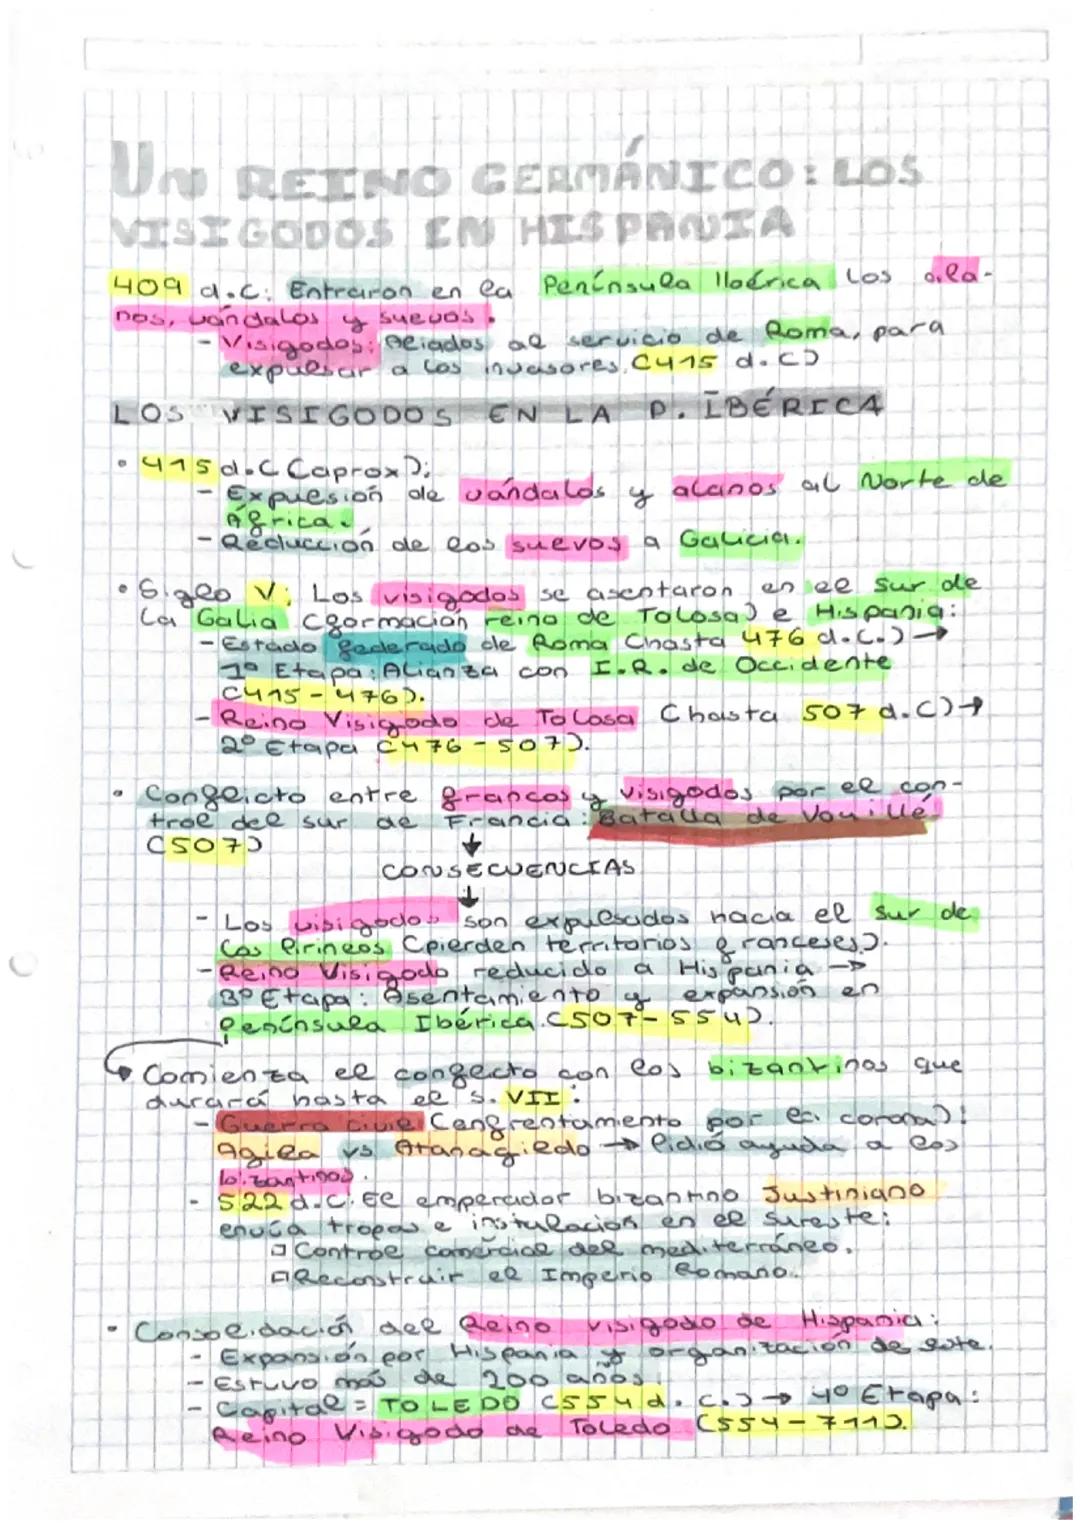 UN REINO GERMÁNICO: LOS
VISIGODOS EN HISPANIA
409 d.C: Entraron en la Península Ibérica los ala-
nos, vándalos y suevos.
- Visigodos: Aliados al servicio de Roma, para
expulsar a los invasores. (415 d.C)
LOS VISIGODOS EN LA P. IBÉRICA
• 415 d.C (aprox):
- Expulsión de vándalos y alanos al Norte de
África.
- Reducción de los suevos a Galicia.
• Siglo V: Los visigodos se asentaron en el sur de
la Galia (formación reino de Tolosa) e Hispania:
- Estado federado de Roma (hasta 476 d.C.) →
1º Etapa: Alianza con I.R. de Occidente
(415 - 476).
- Reino Visigodo de Tolosa (hasta 507 d.C) →
2º Etapa (476 - 507).
• Conflicto entre francos y visigodos por el con-
trol del sur de Francia: Batalla de Vouillé
(507)
↓
CONSECUENCIAS
↓
- Los visigodos son expulsados hacia el sur de
los Pirineos (pierden territorios franceses).
- Reino Visigodo reducido a Hispania →
3º Etapa: Asentamiento y expansión en
Península Ibérica. (507 - 554).
Comienza el conflecto con los bizantinos que
durará hasta el s. VII:
- Guerra civil (enfrentamento por la corona):
Agila vs Atanagildo → Pidió ayuda a los
bizantinos.
- 522 d.C. El emperador bizantino Justiniano
envía tropas e instalación en el sureste:
□ Control comercial del mediterráneo.
□ Reconstruir el Imperio Romano.
• Consolidación del Reino visigodo de Hispania:
- Expansión por Hispania y organización de este.
- Estuvo más de 200 años.
- Capital = TOLEDO (554 d.C.) → 4º Etapa:
Reino Visigodo de Toledo (554 - 711).